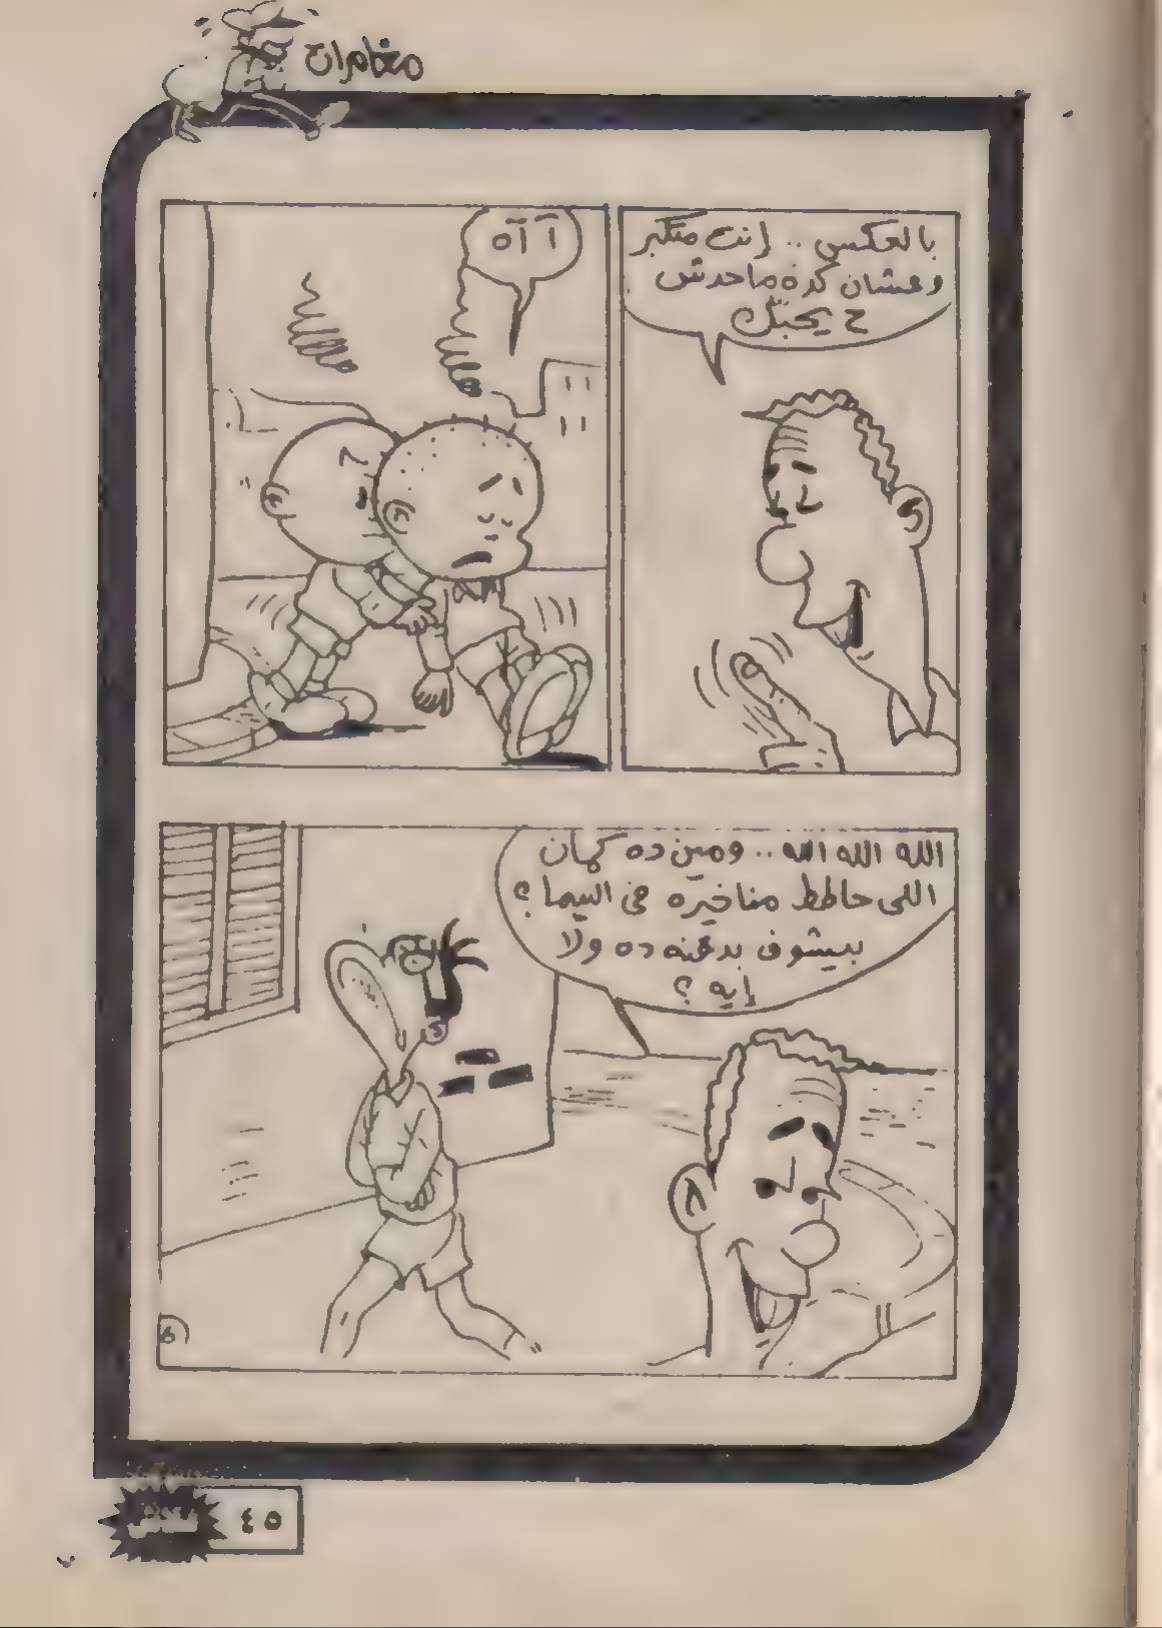 مغامرات
بالعكس .. إنت متكبر
وعشان كده ماحدش
ح يحبّك
آ آآه
الله الله الله .. ومين ده كمان
اللى حاطط مناخيره فى السما ؟
بيشوف بدقنه ده ولا
إيه ؟
6
٤٥